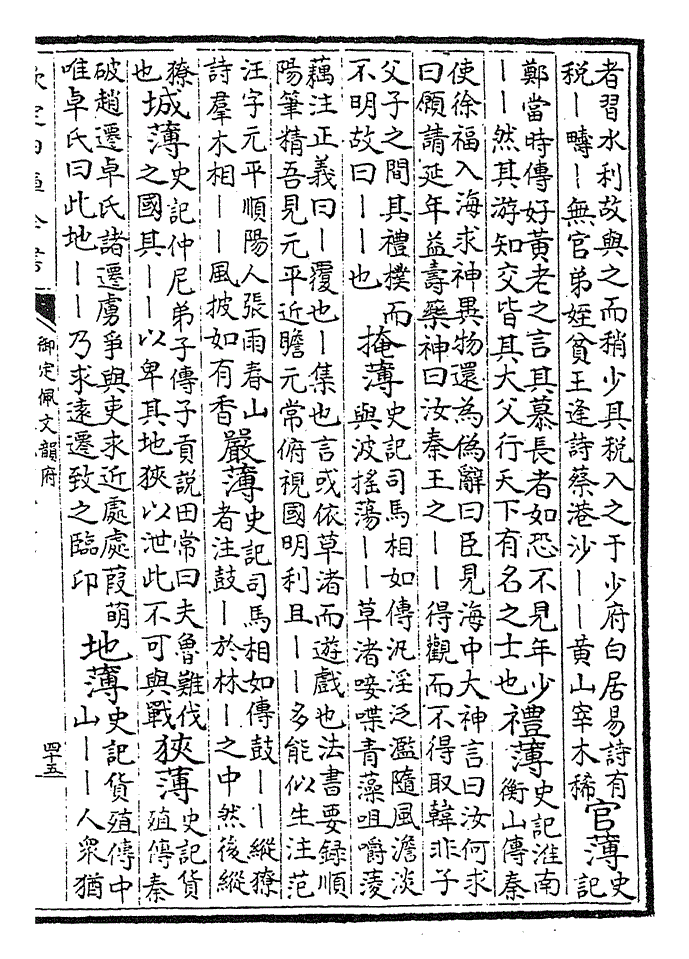 者習水利故與之而稍少其税入之于少府白居易詩有
税丨疇丨無官弟姪貧王逢詩蔡港沙丨丨黄山宰木稀
官薄
史
記
鄭當時傳好黄老之言其慕長者如恐不見年少
丨丨然其游知交皆其大父行天下有名之士也
禮薄
史記淮南
衡山傳秦
使徐福入海求神異物還為偽辭曰臣見海中大神言曰汝何求
曰願請延年益壽藥神曰汝秦王之丨丨得觀而不得取韓非子
父子之間其禮樸而
不明故曰丨丨也
掩薄
史記司馬相如傳汎淫泛濫隨風澹淡
與波摇蕩丨丨草渚唼喋青藻咀嚼菱
藕注正義曰丨覆也丨集也言或依草渚而遊戲也法書要録順
陽筆精吾見元平近瞻元常俯視國明利且丨丨多能似生注范
汪字元平順陽人張雨春山
詩羣木相丨丨風披如有香
嚴薄
史記司馬相如傳鼓丨丨縱獠
者注鼓丨於林丨之中然後縱
獠
也
城薄
史記仲尼弟子傳子貢説田常曰夫魯難伐
之國其丨丨以卑其地狹以泄此不可與戰
狹薄
史記貨
殖傳秦
破趙遷卓氏諸遷虜爭與吏求近處處葭萌
唯卓氏曰此地丨丨乃求遠遷致之臨卭
地薄
史記貨殖傳中
山丨丨人衆猶
欽定四庫全書
御定佩文韻府
四十五